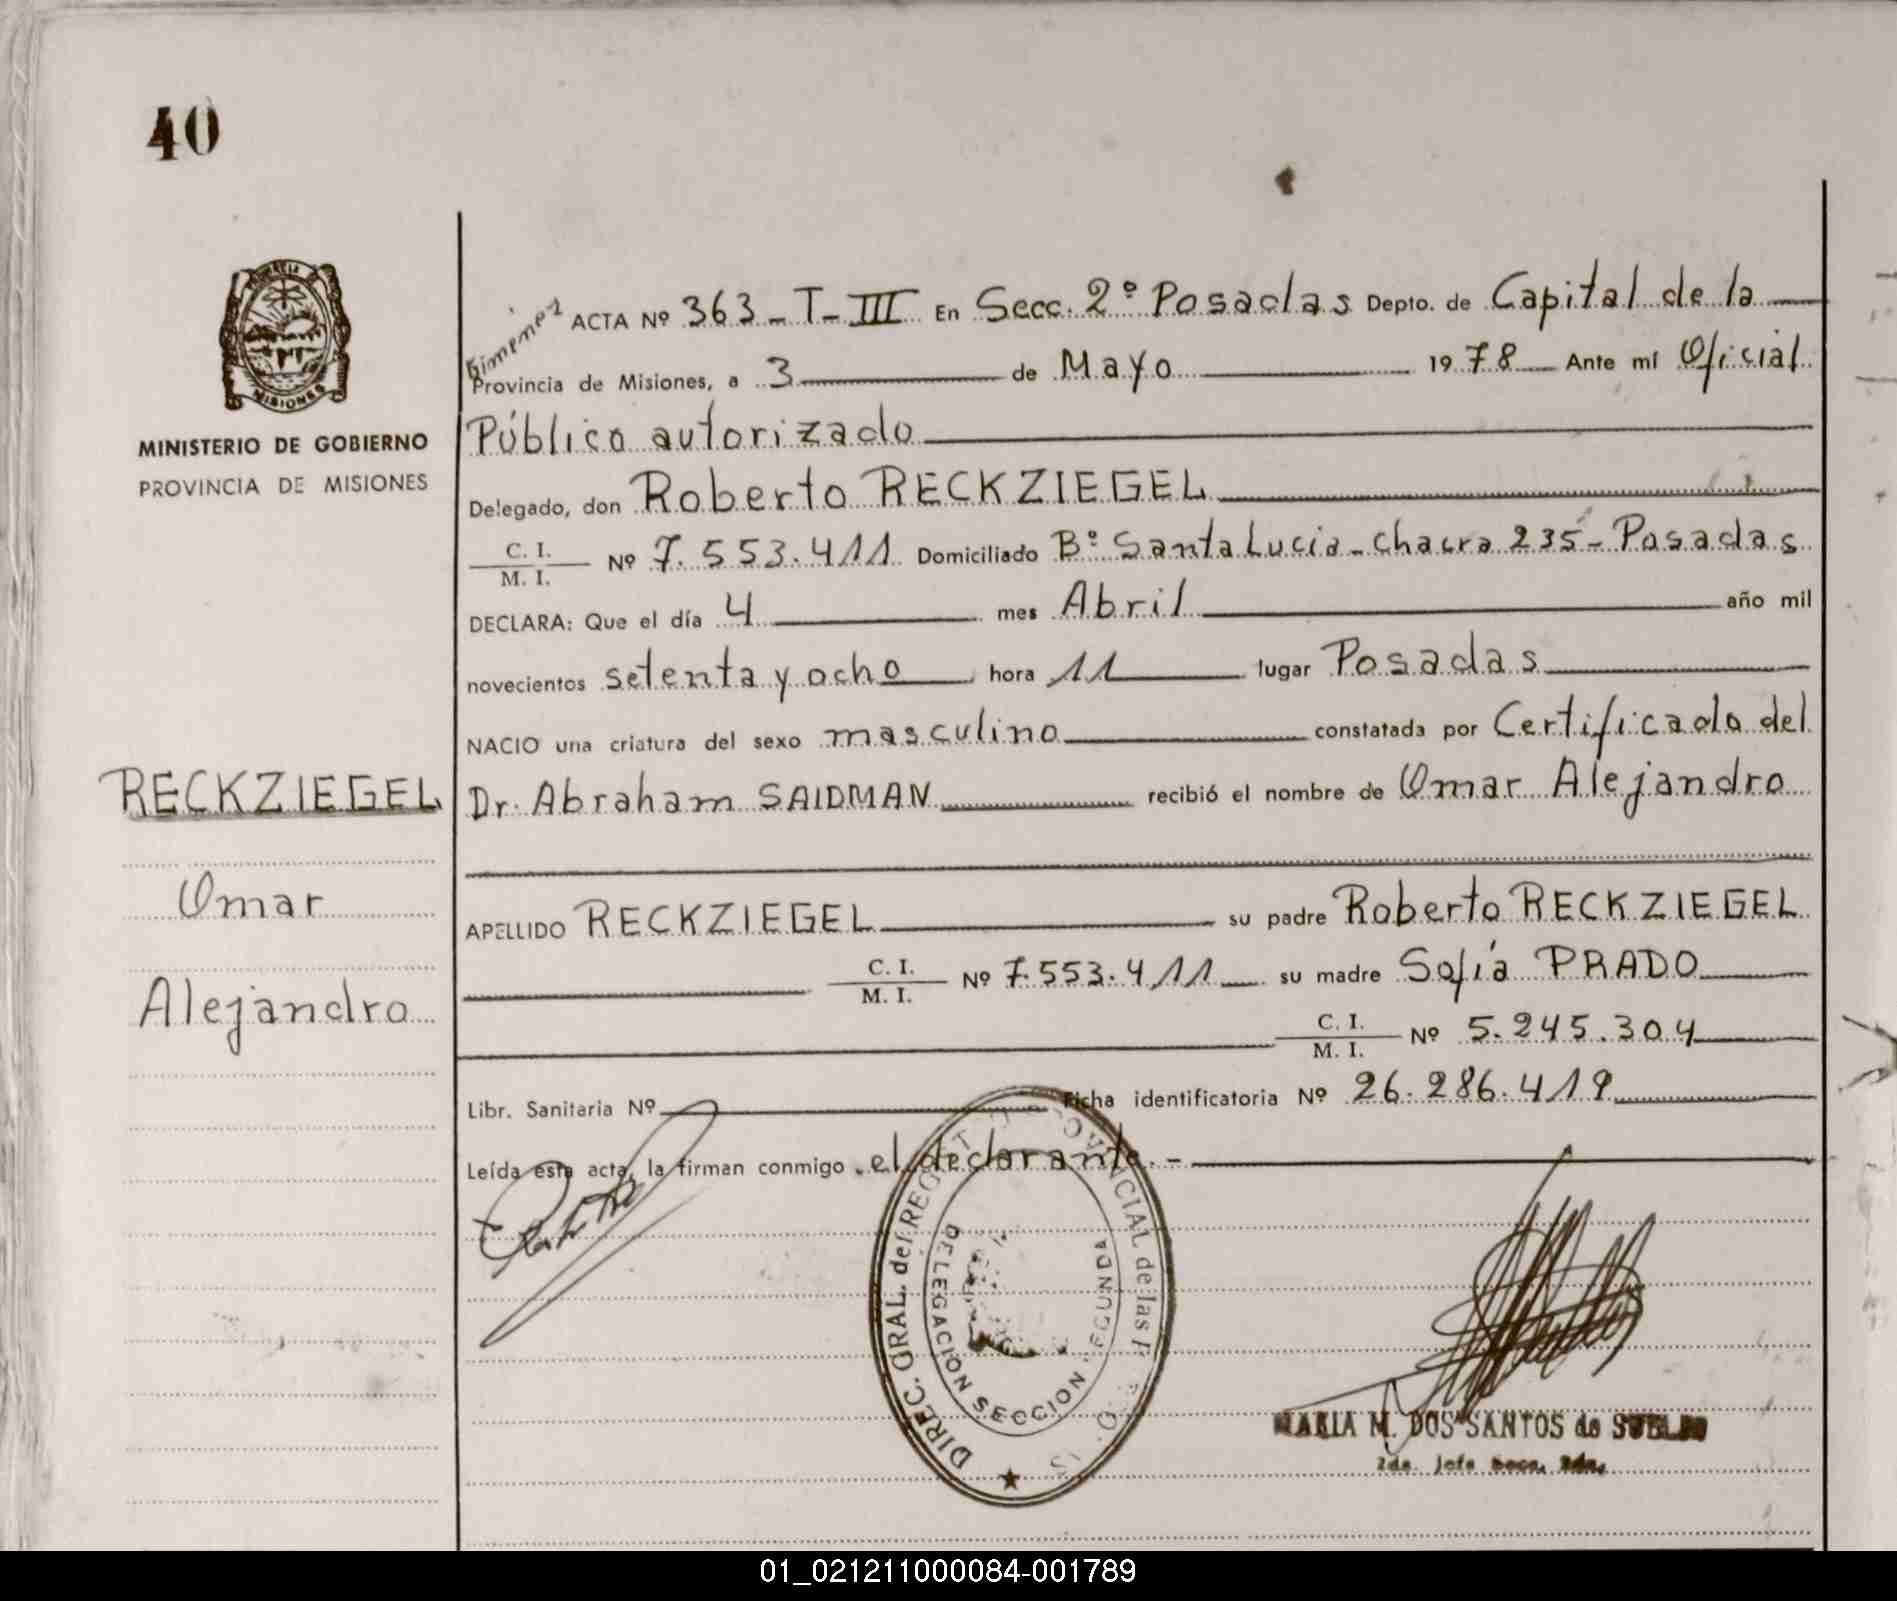 40
MISIONES
MINISTERIO DE GOBIERNO
PROVINCIA DE MISIONES
RECKZIEGEL
Omar
Alejandro
Gimenez
ACTA Nº 363-T-III En Secc. 2º Posadas Depto. de Capital de la
Provincia de Misiones, a 3 de Mayo 1978 Ante mí Oficial
Público autorizado
Delegado, don Roberto RECKZIEGEL
C. I.
M. I. Nº 7.553.411 Domiciliado Bº Santa Lucia - chacra 235 - Posadas
DECLARA: Que el día 4 mes Abril año mil
novecientos setenta y ocho hora 11 lugar Posadas
NACIO una criatura del sexo masculino constatada por Certificado del
Dr. Abraham SAIDMAN recibió el nombre de Omar Alejandro
APELLIDO RECKZIEGEL su padre Roberto RECKZIEGEL
C. I.
M. I. Nº 7.553.411 su madre Sofía PRADO
C. I.
M. I. Nº 5.245.304
Libr. Sanitaria Nº Ficha identificatoria Nº 26.286.419
Leída esta acta, la firman conmigo el declarante.-
DIREC. GRAL. del REG PROVINCIAL de las P
DELEGACION SECCION SEGUNDA
MARIA M. DOS SANTOS de
2da. Jefe Secc. 2da.
01_021211000084-001789